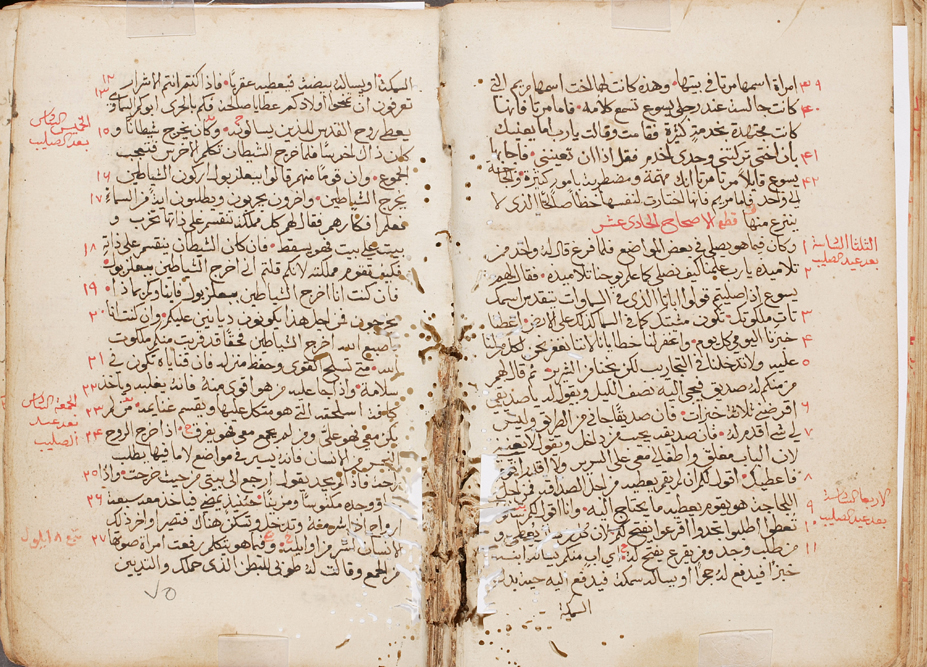 ٣٩ امراة اسمها مرتا في بيتها • وهذه كانت لها اخت اسمها مريم التي
٤٠ كانت جالسة عند رجلي يسوع تسمع كلامه • فاما مرتا فانها
كانت مجتهدة بخدمة كثيرة • فقامت وقالت يارب اما يعنيك
٤١ بان اختي تركتني وحدي اخدم • فقل لها ان تعينني • فاجابها
٤٢ يسوع قايلا مرتا مرتا انك مهتمة ومضطربة بامور كثيرة • والحاجة
الى واحد • فاما مريم فانها اختارت لنفسها حظا صالحا الذي لا
ينزع منها • قطع الاصحاح الحادي عشر
١ وكان فيما هو يصلي في بعض المواضع • فلما فرغ قال له واحد من
الثلثا السادسة
بعد عيد الصليب
٢ تلاميذه يارب علمنا كيف نصلي كما علم يوحنا تلاميذه • فقال لهم
يسوع اذا صليتم قولوا ابانا الذي في السماوات يتقدس اسمك
٣ تات ملكوتك • تكون مشيتك كما في السما كذلك على الارض • اعطنا
٤ خبزنا اليومي كل يوم • واغفر لنا خطايانا لاننا نحن نغفر لكل من لنا
٥ عليه • ولا تدخلنا في التجاريب لكن نجنا من الشرير • ثم قال لهم
من منكم له صديق فيجي اليه نصف الليل ويقول له يا صديقي
٦ اقرضني ثلاثة خبزات • فان صديقا جاني من الطريق وليس
٧ لي شي اقدم له • فان صديقه يجيب من داخل ويقول لا تعنيني
لان الباب مغلق واطفالي معي على السرير ولا اقدر اقوم
٨ فاعطيك • اقول لكم ان لم يقم يعطيه من اجل الصداقة فمن اجل
٩ اللجاجة هو يقوم يعطيه ما يحتاج اليه • وانا اقول لكم سلوا
الاربعا السادسة
بعد عيد الصليب
١٠ تعطوا اطلبوا تجدوا اقرعوا يفتح لكم •
١١ من طلب وجد ومن يقرع يفتح له • اي اب منكم يساله ابنه
خبزا فيدفع له حجرا او يساله سمكة فيدفع اليه حية بدل
السمكة
١٢ السمكة • او يساله بيضة فيعطيه عقربا • فاذا كنتم انتم الاشرار
١٣ تعرفون ان تمنحوا اولادكم عطايا صالحة فكم بالحري ابوكم السماوي
يعطي روح القدس للذين يسالونه •
الخميس السادس
بعد الصليب
١٤ وكان يخرج شيطانا و
كان ذاك اخرسا فلما خرج الشيطان تكلم الاخرس فتعجب
١٥ الجموع • وان قوما منهم قالوا ببعلزبول اركون الشياطين
١٦ يخرج الشياطين • واخرون يجربونه ويطلبون اية من السماء
١٧ فعلم افكارهم فقال لهم كل مملكة تنقسم على ذاتها تخرب و
١٨ بيت على بيت فهو يسقط • فان كان الشيطان ينقسم على ذاته
فكيف تقوم مملكته لانكم قلتم اني اخرج الشياطين ببعلزبول •
١٩ فان كنت انا اخرج الشياطين ببعلزبول فابناوكم بماذا
٢٠ يخرجون من اجل هذا يكونون ديانين عليكم • وان كنت انا
باصبع الله اخرج الشياطين فحقا قد قربت منكم ملكوت
٢١ الله • متى تسلح القوي وحفظ منزله فان قناياه تكون في
٢٢ سلامة • واذا جا عليه من هو اقوى منه فانه يغلبه وياخذ
الجمعة السادسة
بعد عيد
الصليب
٢٣ كافة اسلحته التي هو متكل عليها ويقسم غنايمه • من لم
٢٤ يكن معي فهو علي • ومن لم يجمع معي فهو يفرق • اذا خرج الروح
النجس من الانسان فانه يسير في مواضع لا ما فيها يطلب
٢٥ راحة فاذا لم يجد يقول ارجع الى بيتي من حيث خرجت • واذا
٢٦ ووجده مكنوسا ومزينا • حينيذ يمضي فياخذ معه سبعة
ارواح اخر اشر منه وتدخل وتسكن هناك فتصير اواخر ذلك
سبع ٨ ايلول
٢٧ الانسان اشر من اوايله • وفيما هو يتكلم رفعت امراة صوتها
من الجمع وقالت له طوبى للبطن الذي حملك والثديين
٧٥